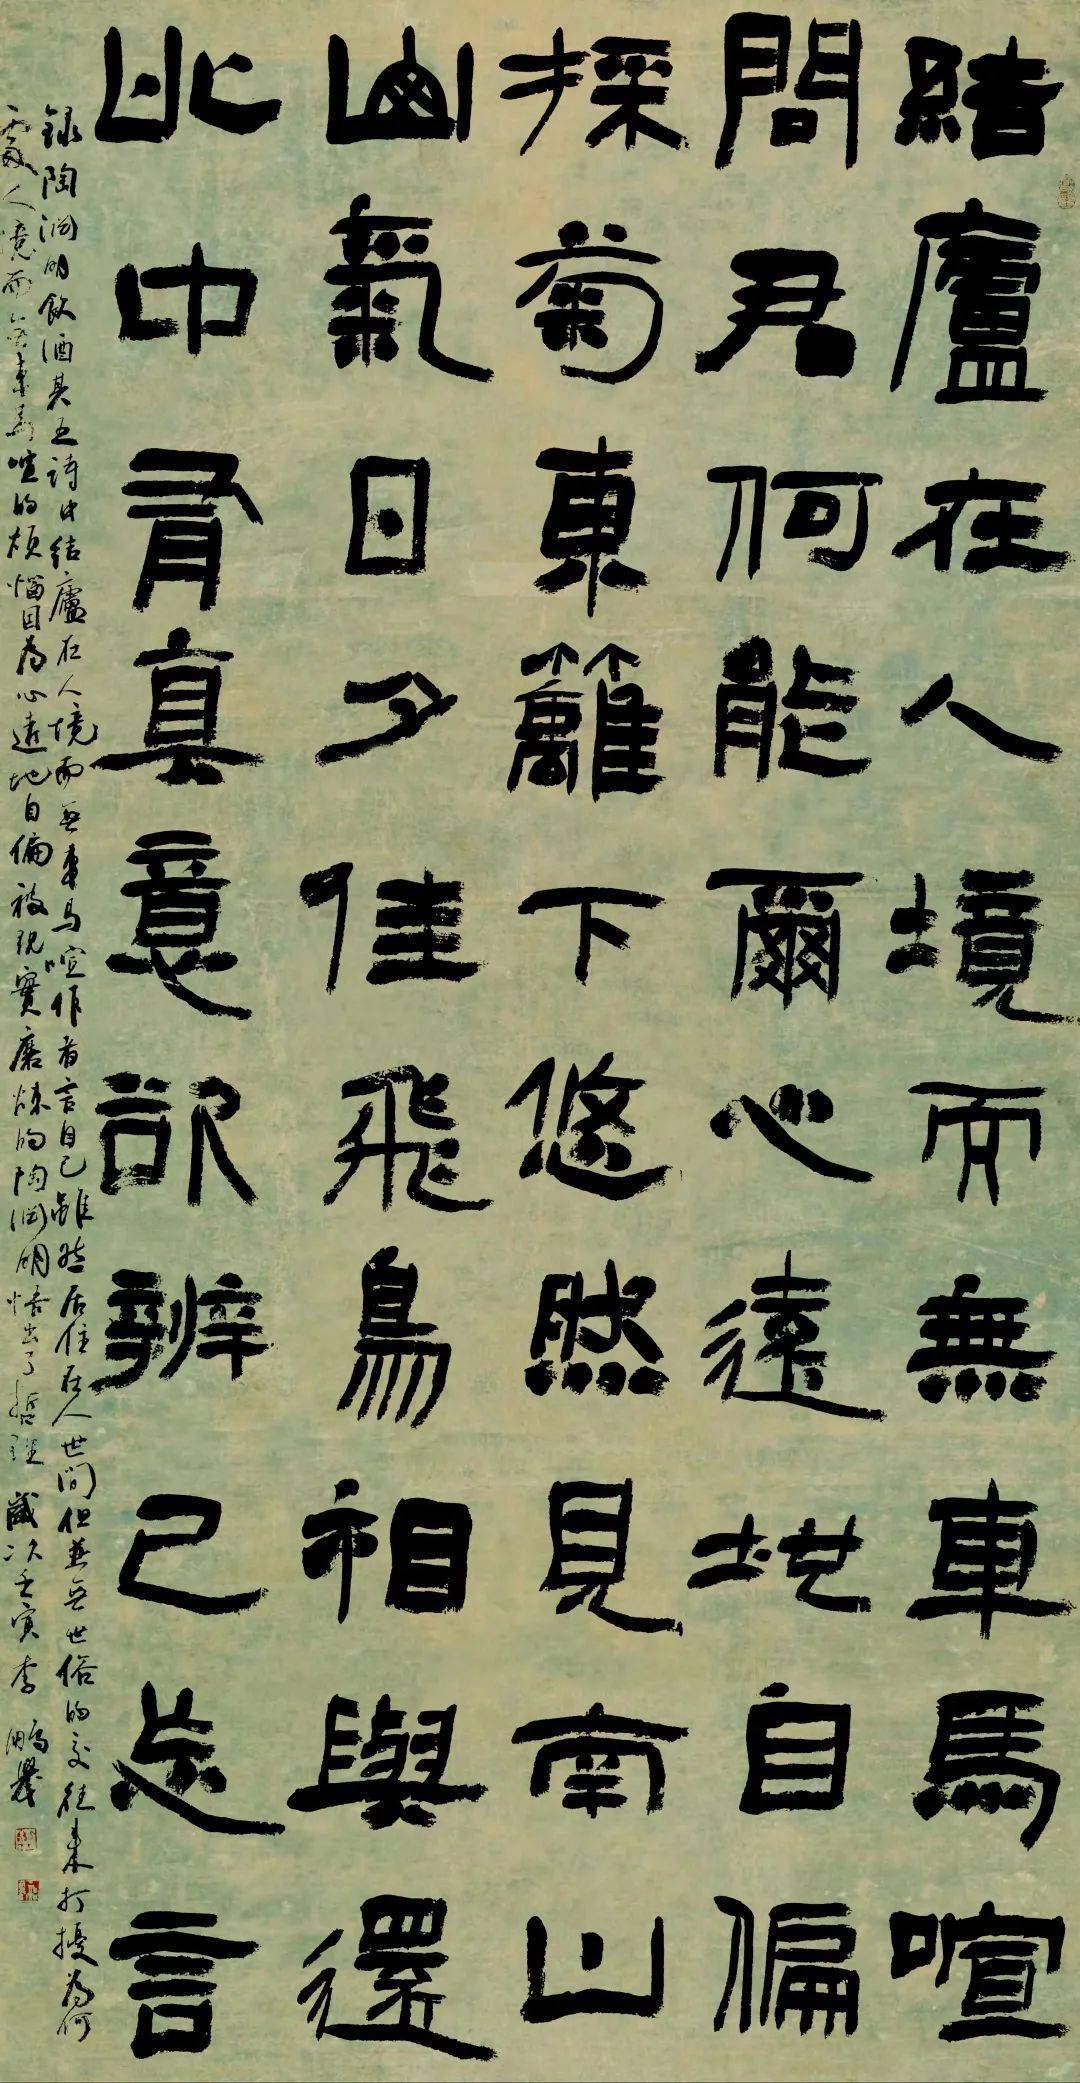 結廬在人境而無車馬喧
問君何能爾心遠地自偏
採菊東籬下悠然見南山
山氣日夕佳飛鳥相與還
此中有真意欲辨已忘言
録陶淵明飲酒其五詩中結廬在人境而無車馬喧作者言自己雖然居住在人世間但並無世俗的交往來打擾為何
處人境而無車馬喧的煩惱因為心遠地自偏被現實磨煉的陶淵明悟出了哲理歲次壬寅李鵬舉